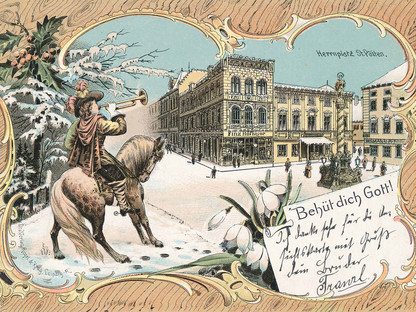 Herrnplatz St. Pölten.
Behüt dich Gott!
Ich danke sehr für die An-
sichtskarte mit Grüße
dein Bruder
Franzl